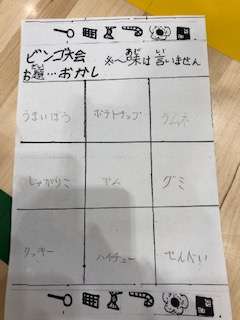 ビンゴ大会
お題…おかし
味は言いません
あじ
い
だい
うまいぼう
ポテトチップ
ラムネ
じゃがりこ
アメ
グミ
クッキー
ハイチュー
せんべい